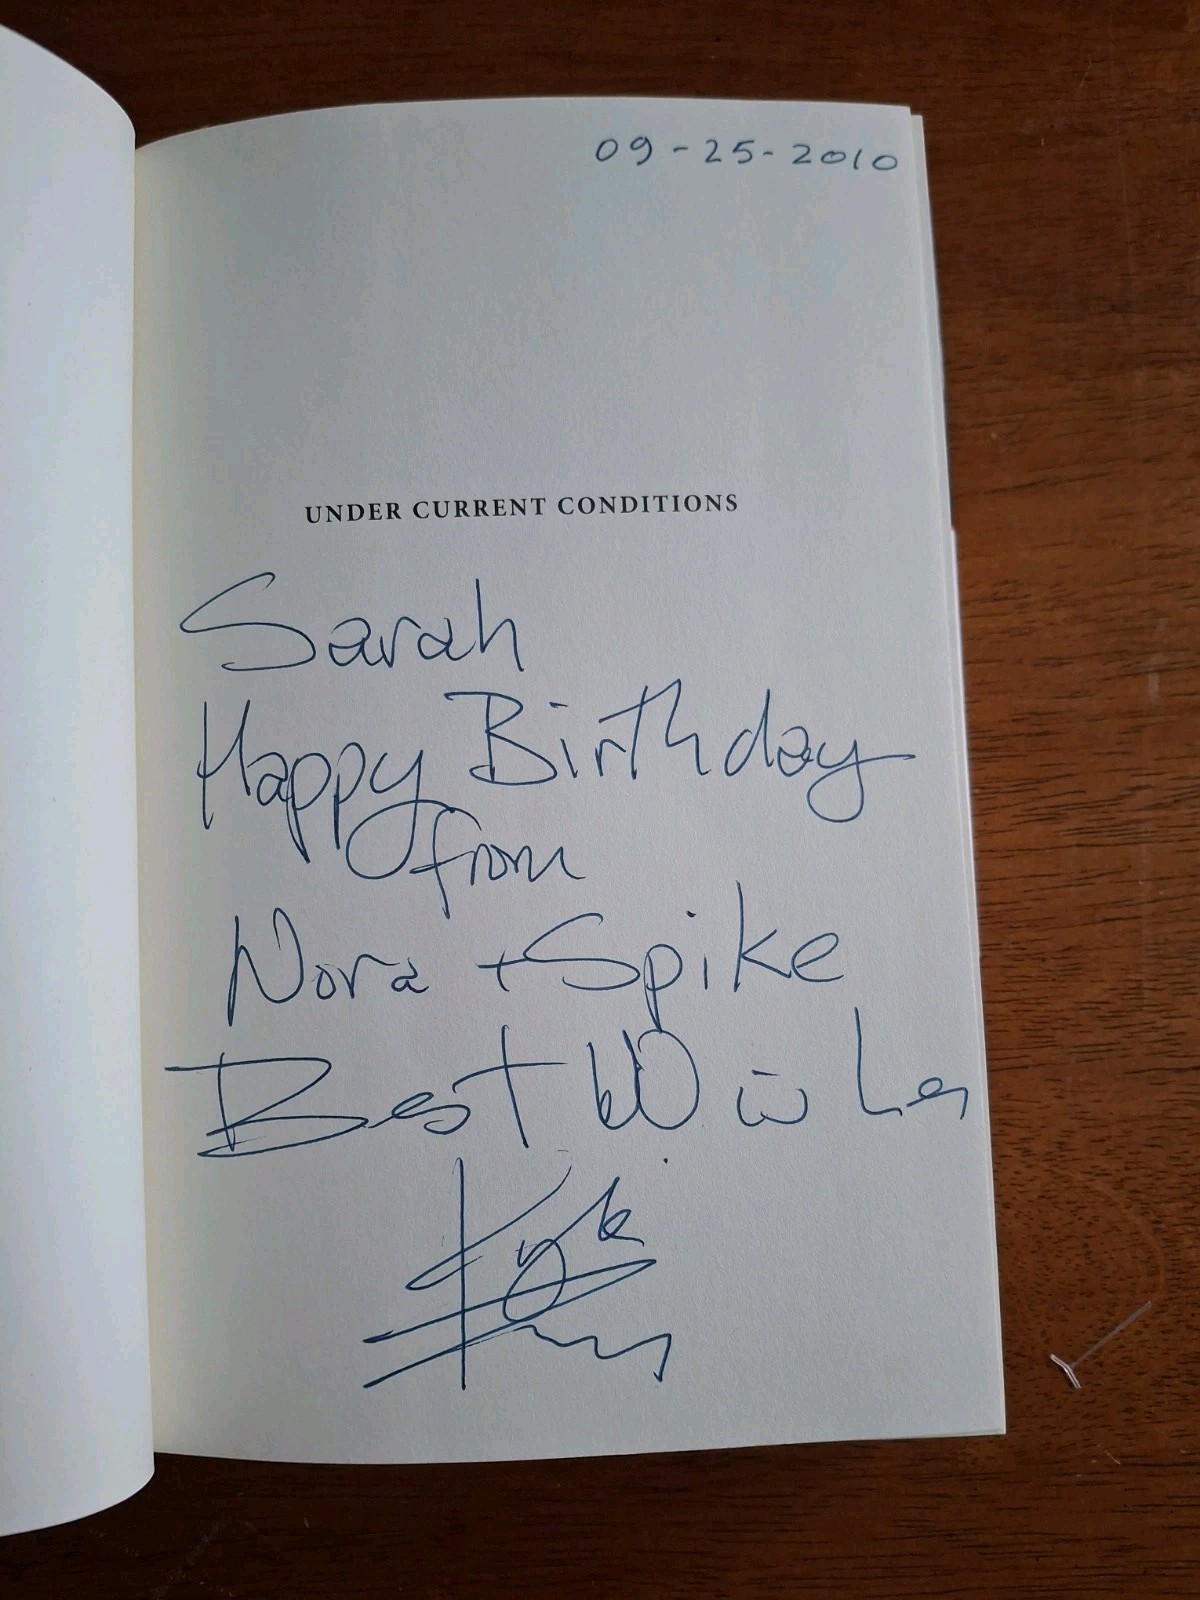 09-25-2010
UNDER CURRENT CONDITIONS
Sarah
Happy Birthday
from
Nora + Spike
Best Wishes